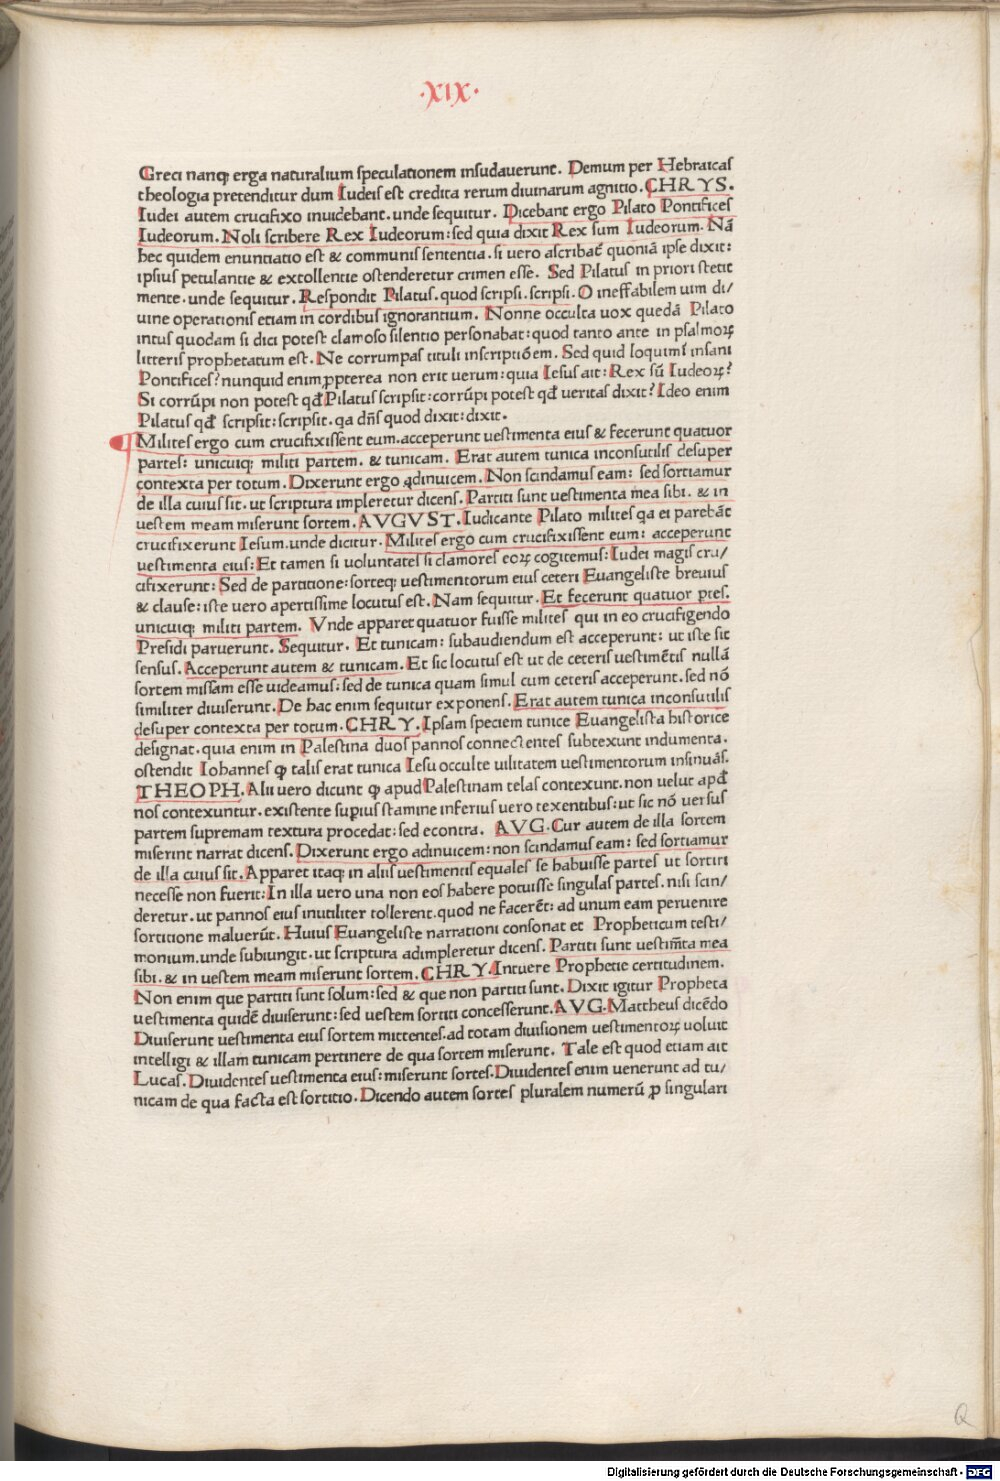 ·XIX·
Greci nanqꝫ erga naturalium speculationem insudauerunt. Demum per Hebraicas
theologia pretenditur dum Iudeis est credita rerum diuinarum agnitio. CHRYS.
Iudei autem crucifixo inuidebant. unde sequitur. Dicebant ergo Pilato Pontifices
Iudeorum. Noli scribere Rex Iudeorum: sed quia dixit Rex sum Iudeorum. Nā
hec quidem enunciatio est & communis sententia. si uero ascribat̄ quoniā ipse dixit:
ipsius petulantie & excollentie ostenderetur crimen esse. Sed Pilatus in priori stetit
mente. unde sequitur. Respondit Pilatus. quod scripsi. scripsi. O ineffabilem uim di/
uine operationis etiam in cordibus ignorantium. Nonne occulta uox quedā Pilato
intus quodam si dici potest clamoso silentio personabat: quod tanto ante in psalmoꝝ
litteris prophetatum est. Ne corrumpas tituli inscriptiōem. Sed quid loquimī insani
Pontifices? nunquid enim ꝓpterea non erit uerum: quia Iesus ait: Rex sū Iudeoꝝ?
Si corrūpi non potest qđ Pilatus scripsit: corrūpi potest qđ ueritas dixit? Ideo enim
Pilatus qđ scripsit: scripsit. qa dn̄s quod dixit: dixit.
Milites ergo cum crucifixissent eum. acceperunt uestimenta eius & fecerunt quatuor
partes: unicuiqꝫ militi partem. & tunicam. Erat autem tunica inconsutilis desuper
contexta per totum. Dixerunt ergo adinuicem. Non scindamus eam: sed sortiamur
de illa cuius sit. ut scriptura impleretur dicens. Partiti sunt uestimenta mea sibi. & in
uestem meam miserunt sortem. AVGVST. Iudicante Pilato milites qa ei parebāt
crucifixerunt Iesum. unde dicitur. Milites ergo cum crucifixissent eum: acceperunt
uestimenta eius: Et tamen si uoluntates si clamores eoꝝ cogitemus: Iudei magis cru/
cifixerunt: Sed de partitione: sorteqꝫ uestimentorum eius ceteri Euangeliste breuius
& clause: iste uero apertissime locutus est. Nam sequitur. Et fecerunt quatuor ptes.
unicuiqꝫ militi partem. Vnde apparet quatuor fuisse milites qui in eo crucifigendo
Presidi paruerunt. Sequitur. Et tunicam: subaudiendum est acceperunt: ut iste sit
sensus. Acceperunt autem & tunicam. Et sic locutus est ut de ceteris uestimētis nullā
sortem missam esse uideamus: sed de tunica quam simul cum ceteris acceperunt. sed nō
similiter diuiserunt. De hac enim sequitur exponens. Erat autem tunica inconsutilis
desuper contexta per totum. CHRY. Ipsam speciem tunice Euangelista historice
designat. quia enim in Palestina duos pannos connectentes subtexunt indumenta.
ostendit Iohannes ꝙ talis erat tunica Iesu occulte uilitatem uestimentorum insinuās.
THEOPH. Alii uero dicunt ꝙ apud Palestinam telas contexunt. non uelut apđ
nos contexuntur. existente supius stamine inferius uero texentibus: ut sic nō uersus
partem supremam textura procedat: sed econtra. AVG. Cur autem de illa sortem
miserint narrat dicens. Dixerunt ergo adinuicem: non scindamus eam: sed sortiamur
de illa cuius sit. Apparet itaqꝫ in aliis uestimentis equales se habuisse partes ut sortiri
necesse non fuerit: In illa uero una non eos habere potuisse singulas partes. nisi scin/
deretur. ut pannos eius inutiliter tollerent. quod ne facerēt: ad unum eam peruenire
sortitione maluerūt. Huius Euangeliste narrationi consonat et Propheticum testi/
monium. unde subiungit. ut scriptura adimpleretur dicens. Partiti sunt uestim̄ta mea
sibi. & in uestem meam miserunt sortem. CHRY. Intuere Prophetie certitudinem.
Non enim que partiti sunt solum: sed & que non partiti sunt. Dixit igitur Propheta
uestimenta quidē diuiserunt: sed uestem sortiti concesserunt. AVG. Mattheus dicēdo
Diuiserunt uestimenta eius sortem mittentes. ad totam diuisionem uestimentoꝝ uoluit
intelligi & illam tunicam pertinere de qua sortem miserunt. Tale est quod etiam ait
Lucas. Diuidentes uestimenta eius: miserunt sortes. Diuidentes enim uenerunt ad tu/
nicam de qua facta est sortitio. Dicendo autem sortes pluralem numerū ꝓ singulari
Q
Digitalisierung gefördert durch die Deutsche Forschungsgemeinschaft - DFG